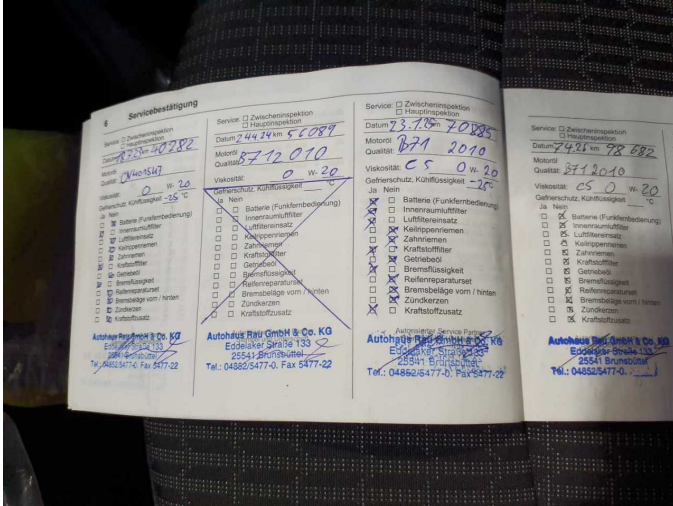 6 Servicebestätigung
Service: □ Zwischeninspektion
□ Hauptinspektion
Datum km 40282
Motoröl
Qualität:
Viskosität: 0 W- 20
Gefrierschutz, Kühlflüssigkeit -25 °C
Ja Nein
Batterie (Funkfernbedienung)
Innenraumluftfilter
Luftfiltereinsatz
Keilrippenriemen
Zahnriemen
Kraftstofffilter
Getriebeöl
Bremsflüssigkeit
Reifenreparaturset
Bremsbeläge vorn / hinten
Zündkerzen
Kraftstoffzusatz
Autohaus Rau GmbH & Co. KG
Eddelaker Straße 133
25541 Brunsbüttel
Tel.: 04852/5477-0. Fax 5477-22
Service: □ Zwischeninspektion
□ Hauptinspektion
Datum 24.4.24 km 56089
Motoröl
Qualität: B712010
Viskosität: 0 W- 20
Gefrierschutz, Kühlflüssigkeit °C
Ja Nein
Batterie (Funkfernbedienung)
Innenraumluftfilter
Luftfiltereinsatz
Keilrippenriemen
Zahnriemen
Kraftstofffilter
Getriebeöl
Bremsflüssigkeit
Reifenreparaturset
Bremsbeläge vorn / hinten
Zündkerzen
Kraftstoffzusatz
Autohaus Rau GmbH & Co. KG
Eddelaker Straße 133
25541 Brunsbüttel
Tel.: 04852/5477-0. Fax 5477-22
Service: □ Zwischeninspektion
□ Hauptinspektion
Datum 23.1.25 km 70885
Motoröl
Qualität: B71 2010
Viskosität: C5 0 W- 20
Gefrierschutz, Kühlflüssigkeit -25 °C
Ja Nein
Batterie (Funkfernbedienung)
Innenraumluftfilter
Luftfiltereinsatz
Keilrippenriemen
Zahnriemen
Kraftstofffilter
Getriebeöl
Bremsflüssigkeit
Reifenreparaturset
Bremsbeläge vorn / hinten
Zündkerzen
Kraftstoffzusatz
Autorisierter Service Partner
Autohaus Rau GmbH & Co. KG
Eddelaker Straße 133
25541 Brunsbüttel
Tel.: 04852/5477-0. Fax 5477-22
Service: □ Zwischeninspektion
□ Hauptinspektion
Datum km 98682
Motoröl
Qualität: B712010
Viskosität: C5 0 W- 20
Gefrierschutz, Kühlflüssigkeit °C
Ja Nein
Batterie (Funkfernbedienung)
Innenraumluftfilter
Luftfiltereinsatz
Keilrippenriemen
Zahnriemen
Kraftstofffilter
Getriebeöl
Bremsflüssigkeit
Reifenreparaturset
Bremsbeläge vorn / hinten
Zündkerzen
Kraftstoffzusatz
Autohaus Rau GmbH & Co. KG
Eddelaker Straße 133
25541 Brunsbüttel
Tel.: 04852/5477-0.